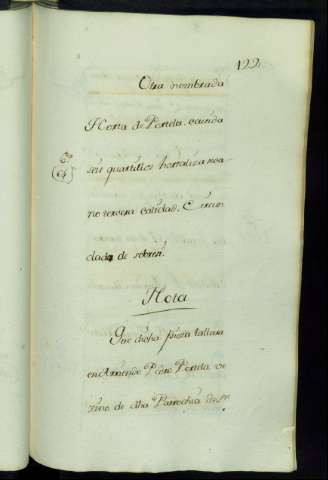 122.
Otra nombrada
Horta de Portela. cavida
seis quartillos hortaliza rega
no tercera calidad. Circun
dada de sobresí.
Nota
Que dicha pieza la llava
en Arriendo Pedro Portela ve
zino de dha Parrochia de Sn